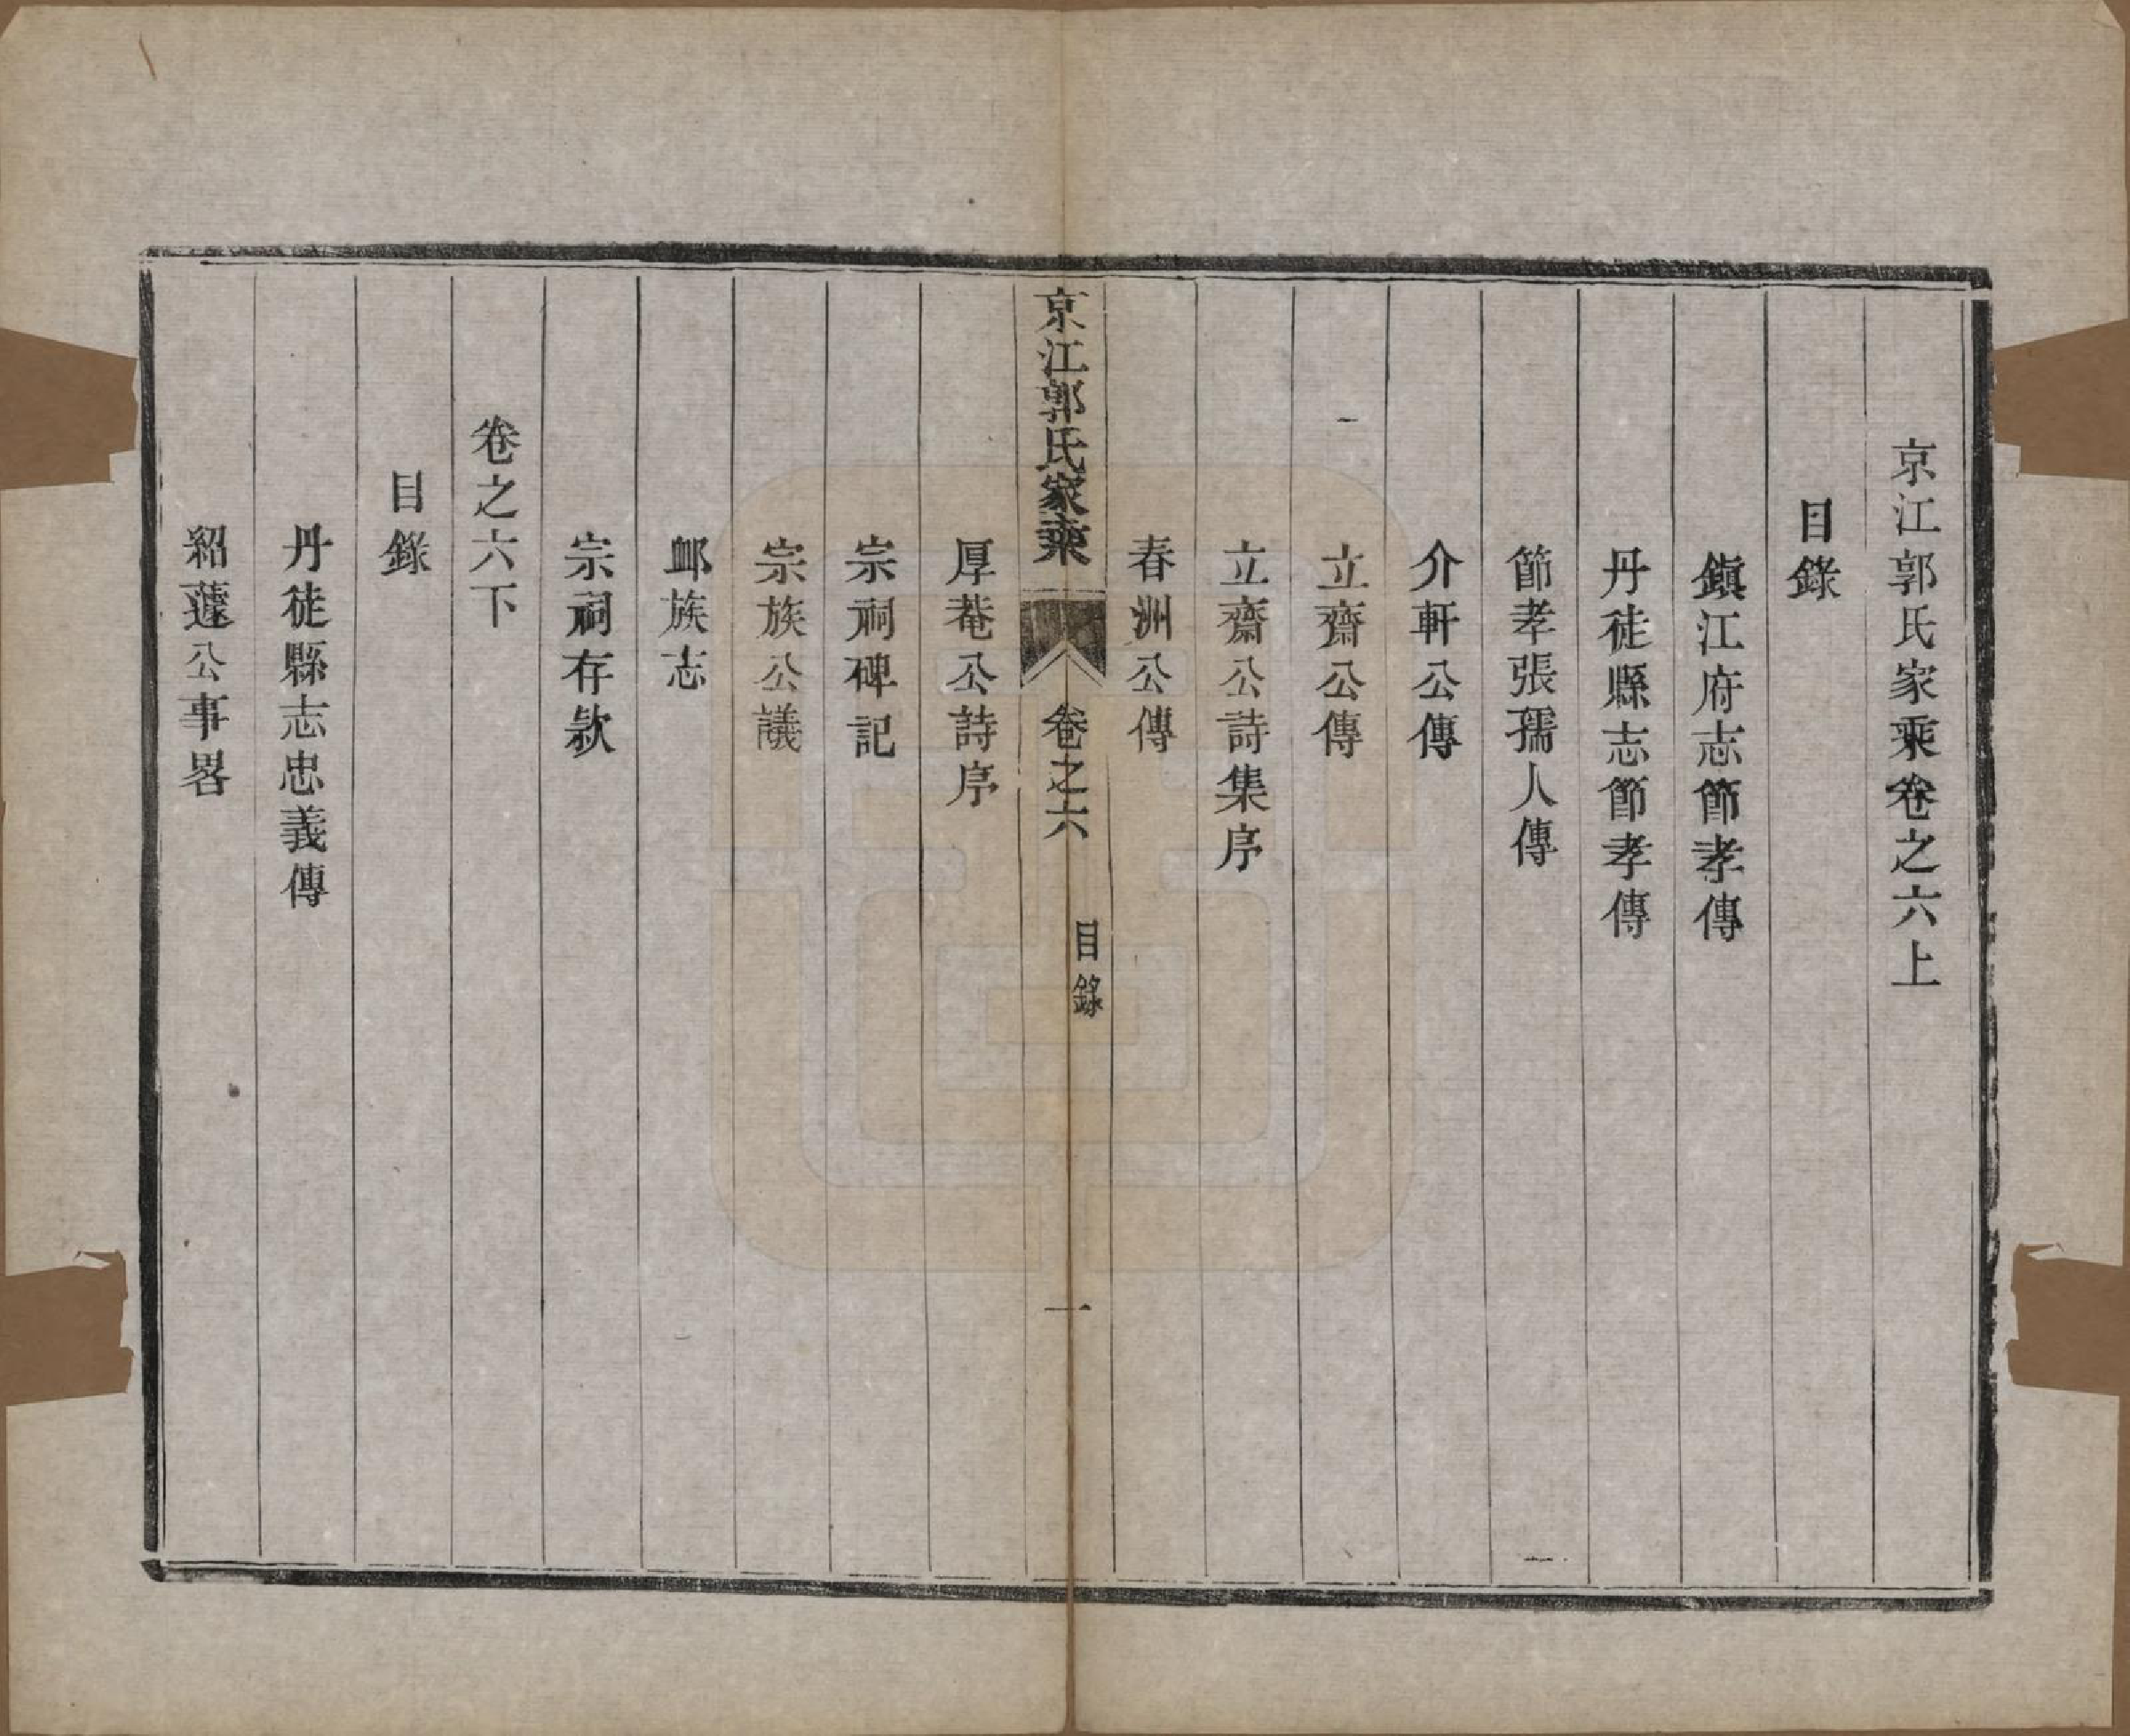 京江郭氏家乘卷之六上
目錄
鎭江府志節孝傳
丹徒縣志節孝傳
節孝張孺人傳
介軒公傳
立齋公傳
立齋公詩集序
春洲公傳
京江郭氏家乘
卷之六
目錄
一
厚菴公詩序
宗祠碑記
宗族公議
䘏族志
宗祠存欵
卷之六下
目錄
丹徒縣志忠義傳
紹蘧公事畧